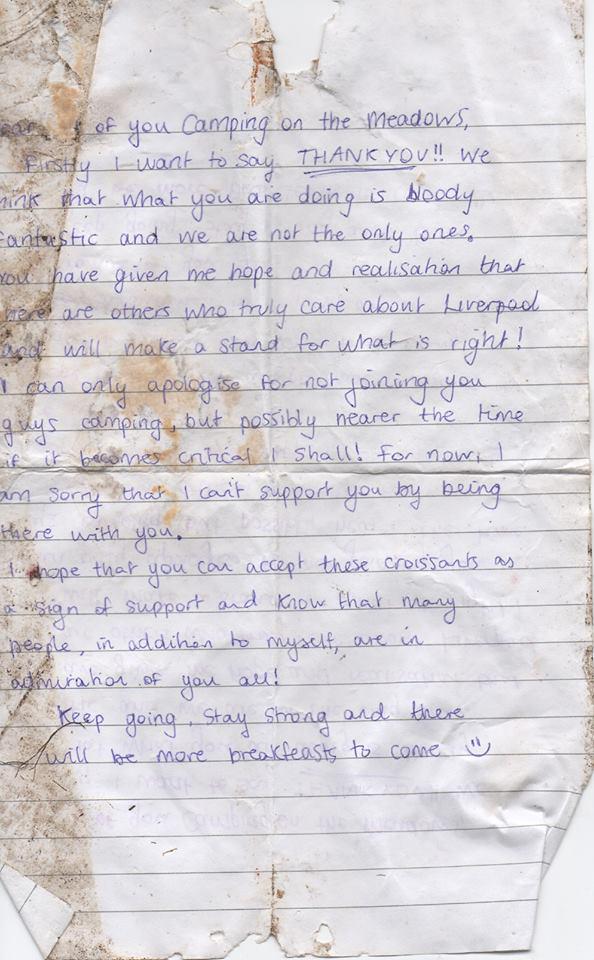 ear of you Camping on the Meadows,
Firstly I want to say THANKYOU!! We
hink that what you are doing is bloody
fantastic and we are not the only ones.
you have given me hope and realisation that
here are others who truly care about Liverpool
and will make a stand for what is right!
I can only apologise for not joining you
guys camping, but possibly nearer the time
if it becomes critical I shall! for now, I
am sorry that I can't support you by being
there with you.
I hope that you can accept these croissants as
a sign of support and know that many
people, in addition to myself, are in
admiration of you all!
Keep going, stay strong and there
will be more breakfeasts to come